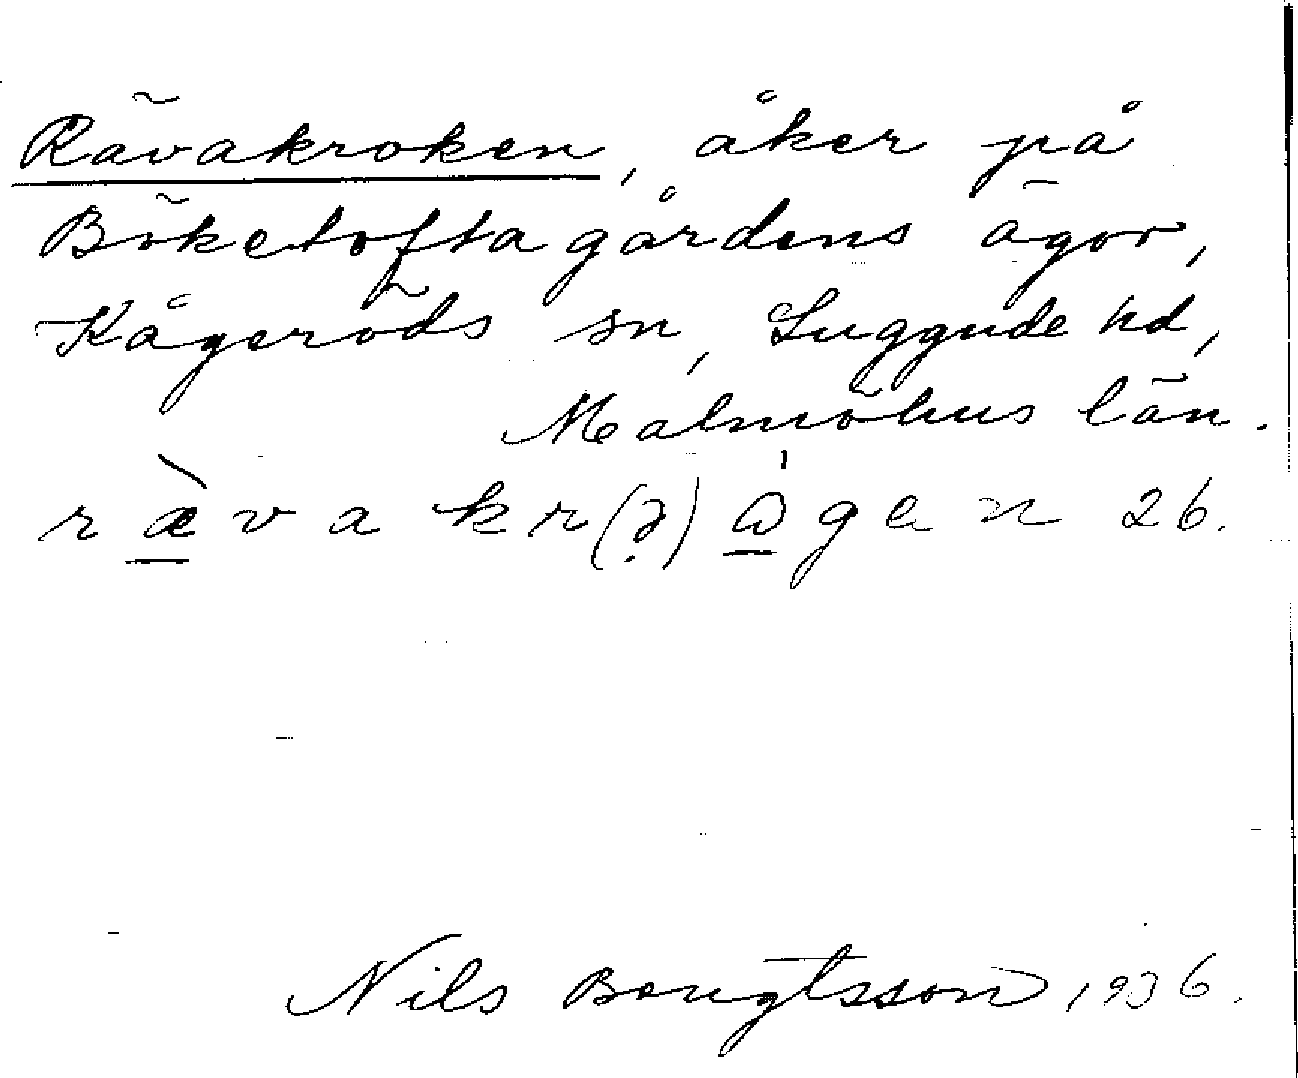 Rävakroken, åker på
Böketoftagårdens ägor,
Kågeröds sn, Luggude hd,
Malmöhus län.
rævakr(ə)ɷgen 26.
Nils Bengtsson, 1936.